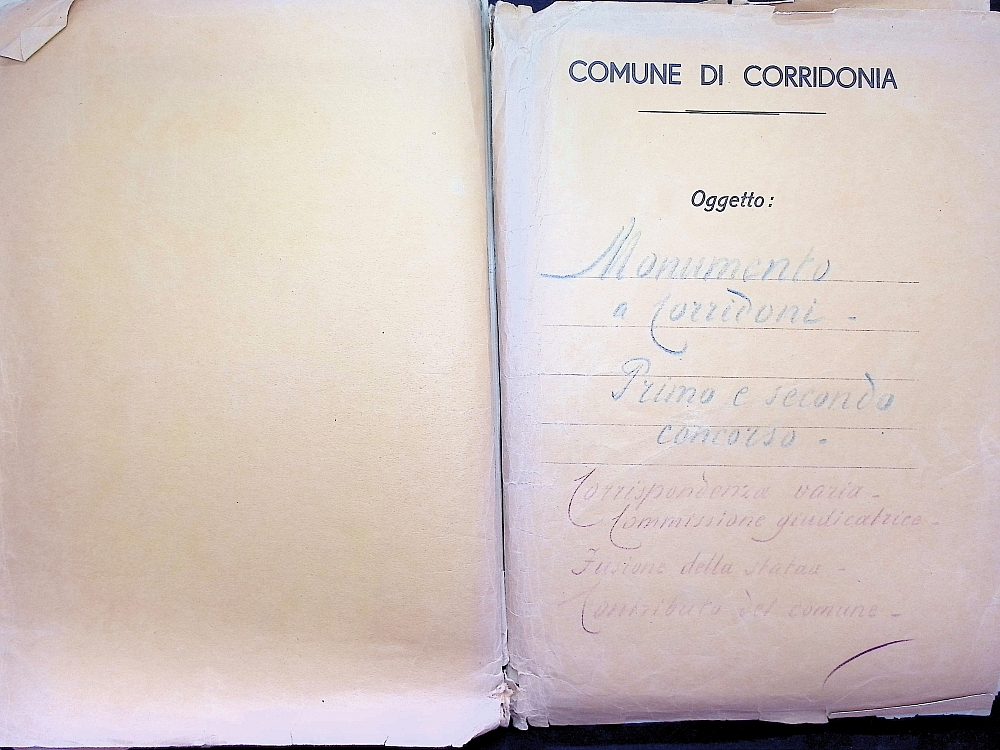 COMUNE DI CORRIDONIA
Oggetto:
Monumento
a Corridoni -
Primo e secondo
concorso -
Corrispondenza varia -
Commissione giudicatrice -
Fusione della statua -
Contributo del comune -